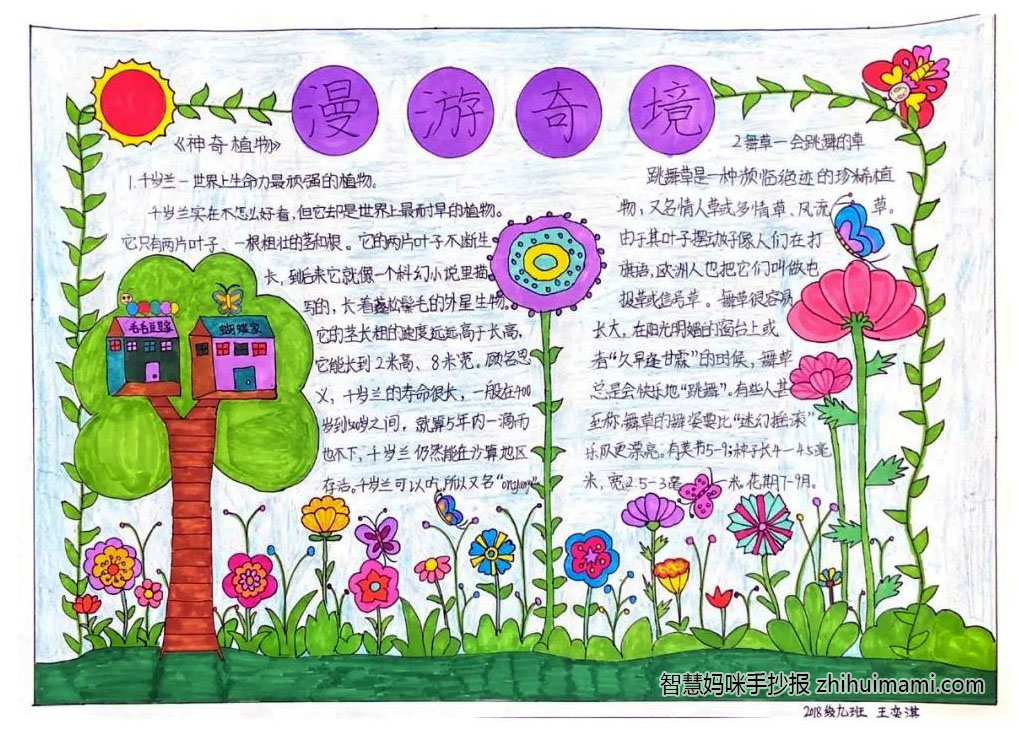 漫游奇境
《神奇植物》
1.千岁兰一世界上生命力最顽强的植物。
千岁兰实在不怎么好看,但它却是世界上最耐旱的植物。
它只有两片叶子、一根粗壮的茎和根。它的两片叶子不断生
长,到后来它就像一个科幻小说里描
写的,长着蓬松鬃毛的外星生物。
它的茎长粗的速度远远高于长高,
它能长到2米高、8米宽。顾名思
义,千岁兰的寿命很长,一般在400
岁到 岁之间,就算5年内一滴雨
也不下,千岁兰仍然能在沙算地区
存活。千岁兰可以吃,所以又名“
毛毛豆家
蝴蝶家
2.舞草一会跳舞的草
跳舞草是一种濒临绝迹的珍稀植
物,又名情人草或多情草、风流 草。
由于其叶子摆动好像人们在打
旗语,欧洲人也把它们叫做电
报草或信号草。舞草很容易
长大,在阳光明媚的窗台上或
者“久旱逢甘霖”的时候,舞草
总是会快乐地“跳舞”。有些人甚
至称舞草的舞姿要比“迷幻摇滚”
乐队更漂亮。有荚节5-9;种子长4-4.5毫
米,宽2.5-3毫 米花期7-9月。
智慧妈咪手抄报 zhihuimami.com
2018级九班 王奕淇